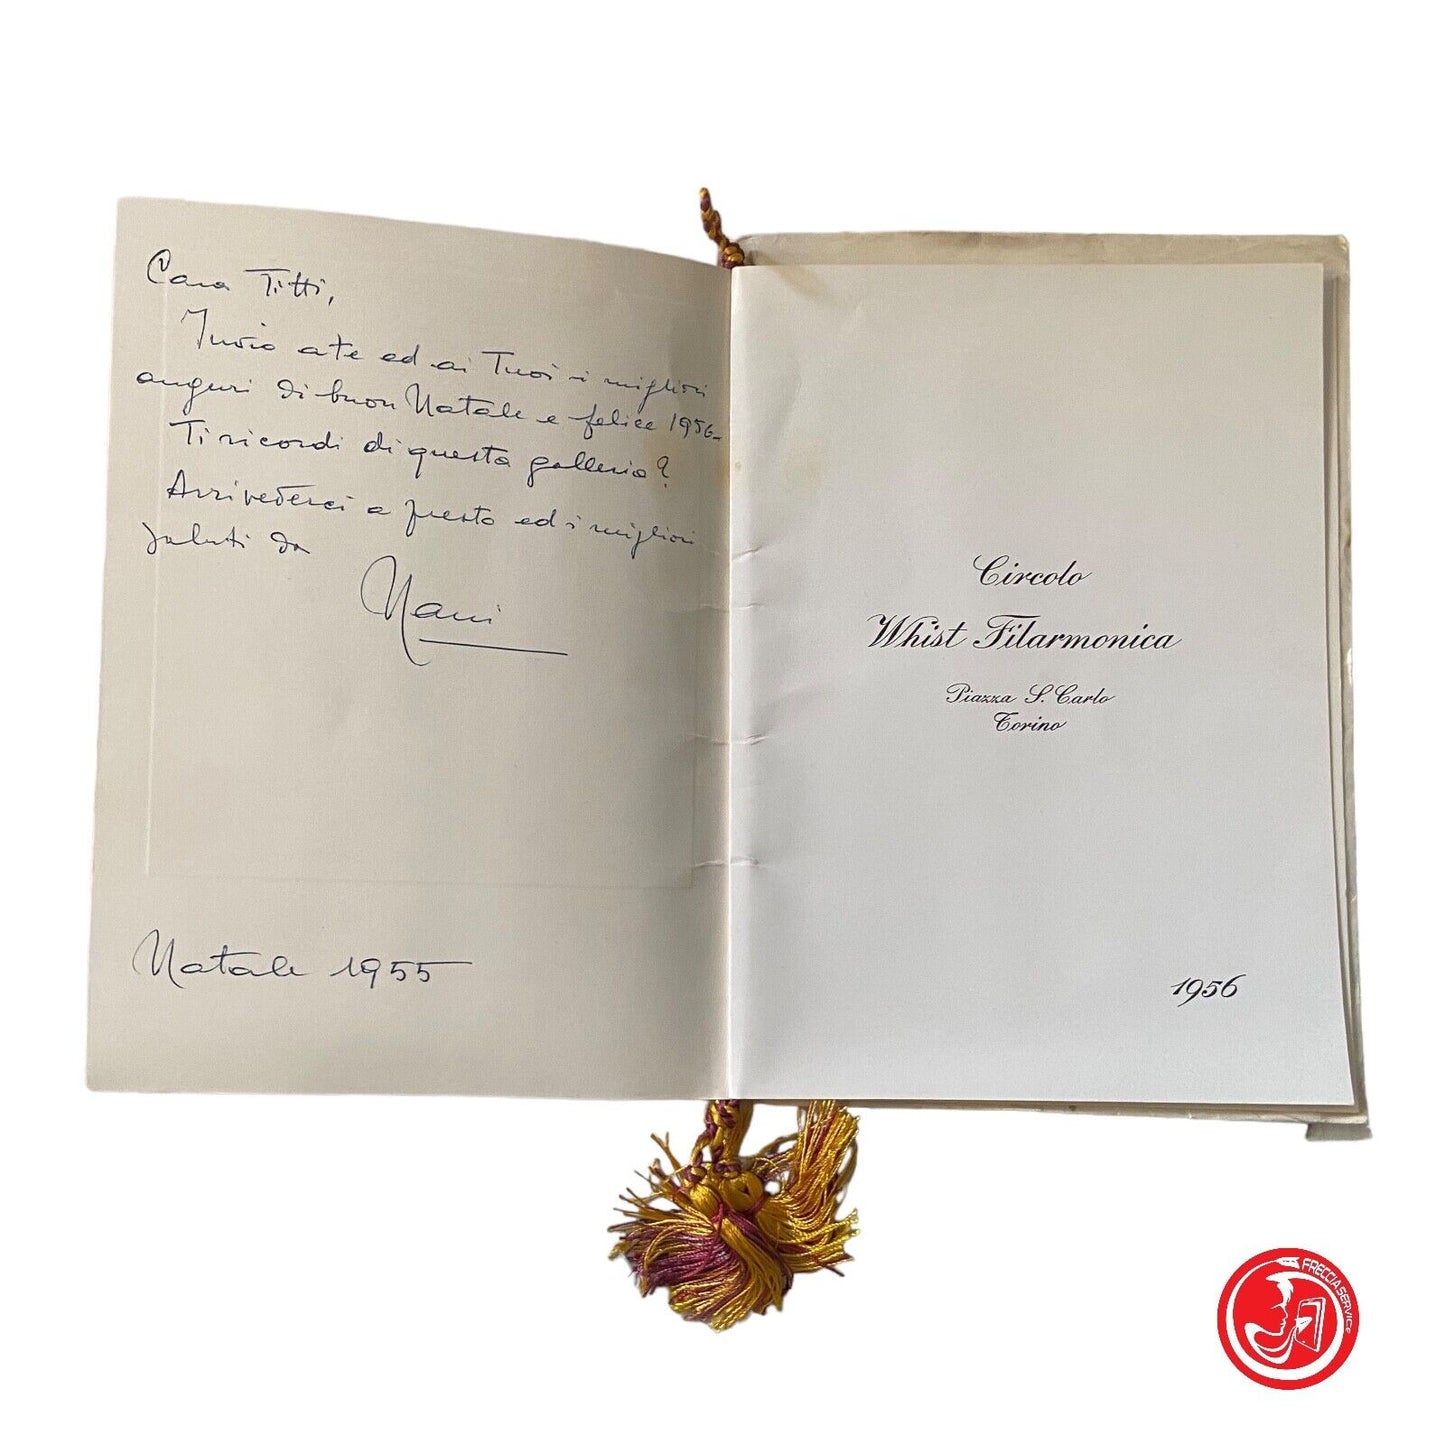 Cara Titti,
Invio a te ed ai Tuoi i migliori
auguri di buon Natale e felice 1956-
Ti ricordi di questa galleria?
Arrivederci a presto ed i migliori
saluti da
Nani
Natale 1955
Circolo
Whist Filarmonica
Piazza S. Carlo
Torino
1956
FRECCIASERVICE